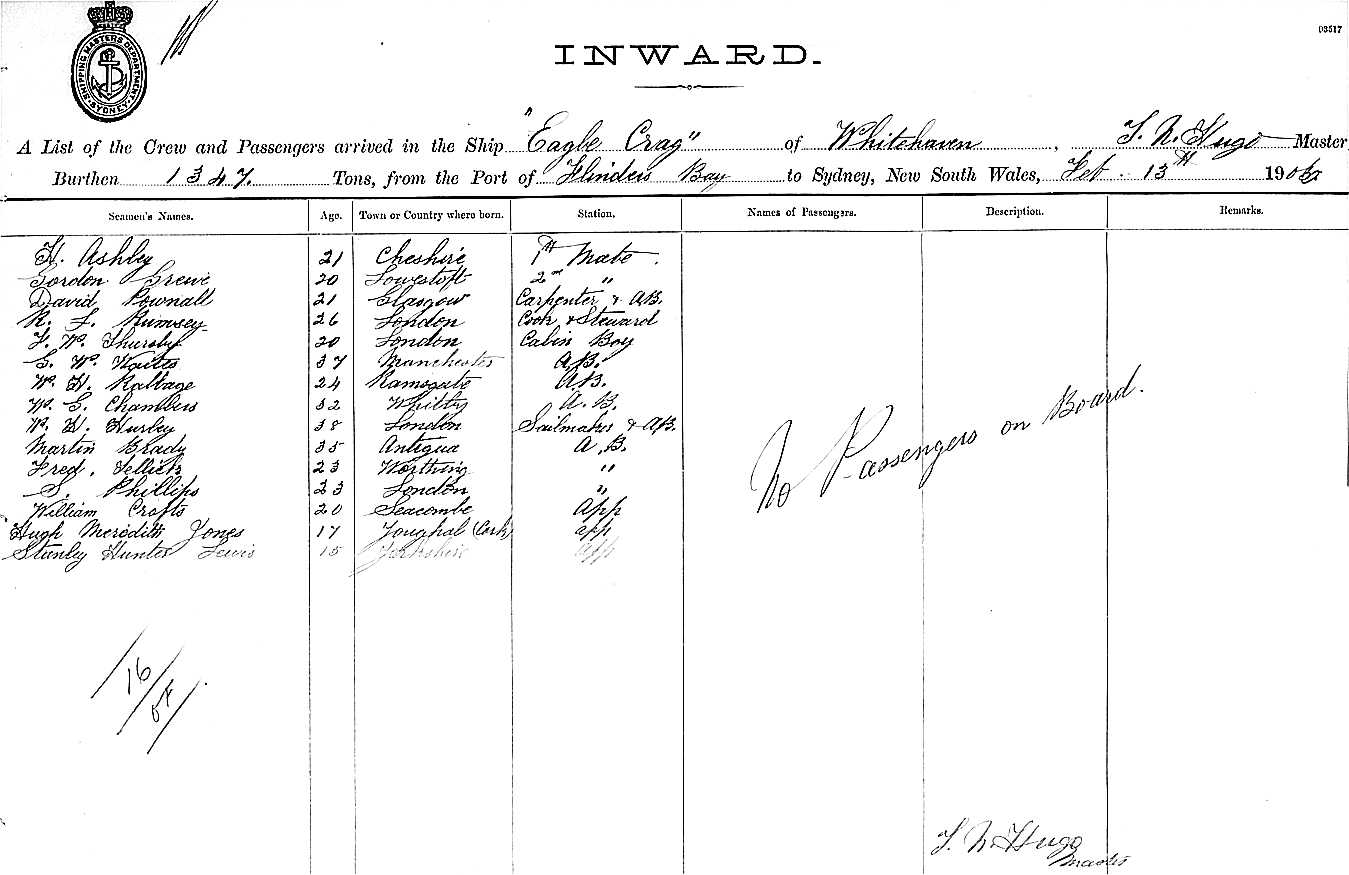 03517
SHIPPING MASTERS DEPARTMENT
SYDNEY
INWARD.
A List of the Crew and Passengers arrived in the Ship "Eagle Crag" of Whitehaven, T. N. Hugo Master
Burthen 1347. Tons, from the Port of Flinders Bay to Sydney, New South Wales, Feb. 13th 1906
Seamen's Names. Age. Town or Country where born. Station. Names of Passengers. Description. Remarks.
H. Ashley 21 Cheshire 1st Mate.
Gordon Grewe 20 Lowestoft 2nd "
David Pownall 21 Glasgow Carpenter & AB.
R. F. Rumsey 26 London Cook & Steward
F. W. Thursby 20 London Cabin Boy
G. W. 37 Manchester A.B.
W. H. Rallage 24 Ramsgate AB.
W. G. Chambers 32 Whitby A.B.
W. H. Hurley 38 London Sailmaker & AB.
Martin Brady 35 Antigua A.B.
Fred. 23 Worthing "
S. Phillips 23 London "
William Crofts 20 Seacombe App
Hugh Meredith Jones 17 Youghal (Cork) app
Stanley Hunter Lewis 15 Yorkshire app
No Passengers on Board.
16
T. N. Hugo
Master